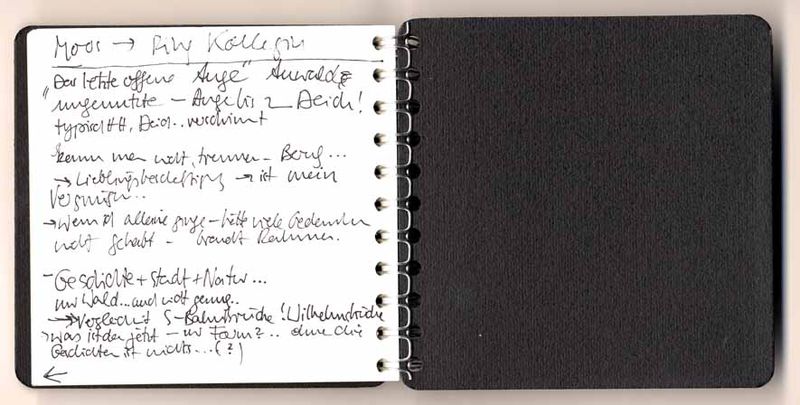 Moos → Kollegin
"Das letzte offene Auge"
ungenutzte – Deich!
typisch HH, Deich.. verschwimmt
kann man nicht trennen – Beruf...
→ Lieblingsbeschäftigung → ist mein
Vergnügen...
→ wenn ich alleine ginge – hätte viele Gedanken
nicht gehabt – braucht Rahmen.
– Geschichte + Stadt + Natur...
nur Wald...auch nicht genug..
→ Vergleich S-Bahnbrücke! Wilhelmsbrücke
→ was ist der jetzt – nur Form?.. ohne die
Geschichten ist nichts...(?)
←